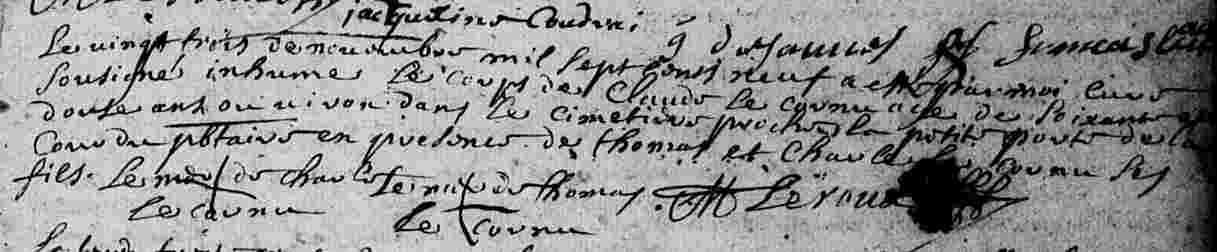 jacqueline Coudrai
Le vingt trois de novembre mil sept cents neuf a esté par moi curé
sousigné inhumé Le corps de Claude Le cornu agé de soixante et
douse ans ou viron dans le cimetiere proche la petite porte de la
Cour du pbtaire en presence de thomas et Charle Le cornu ses
fils. Le mar de Charle Le mar de thomas M Leroux
le cornu le cornu